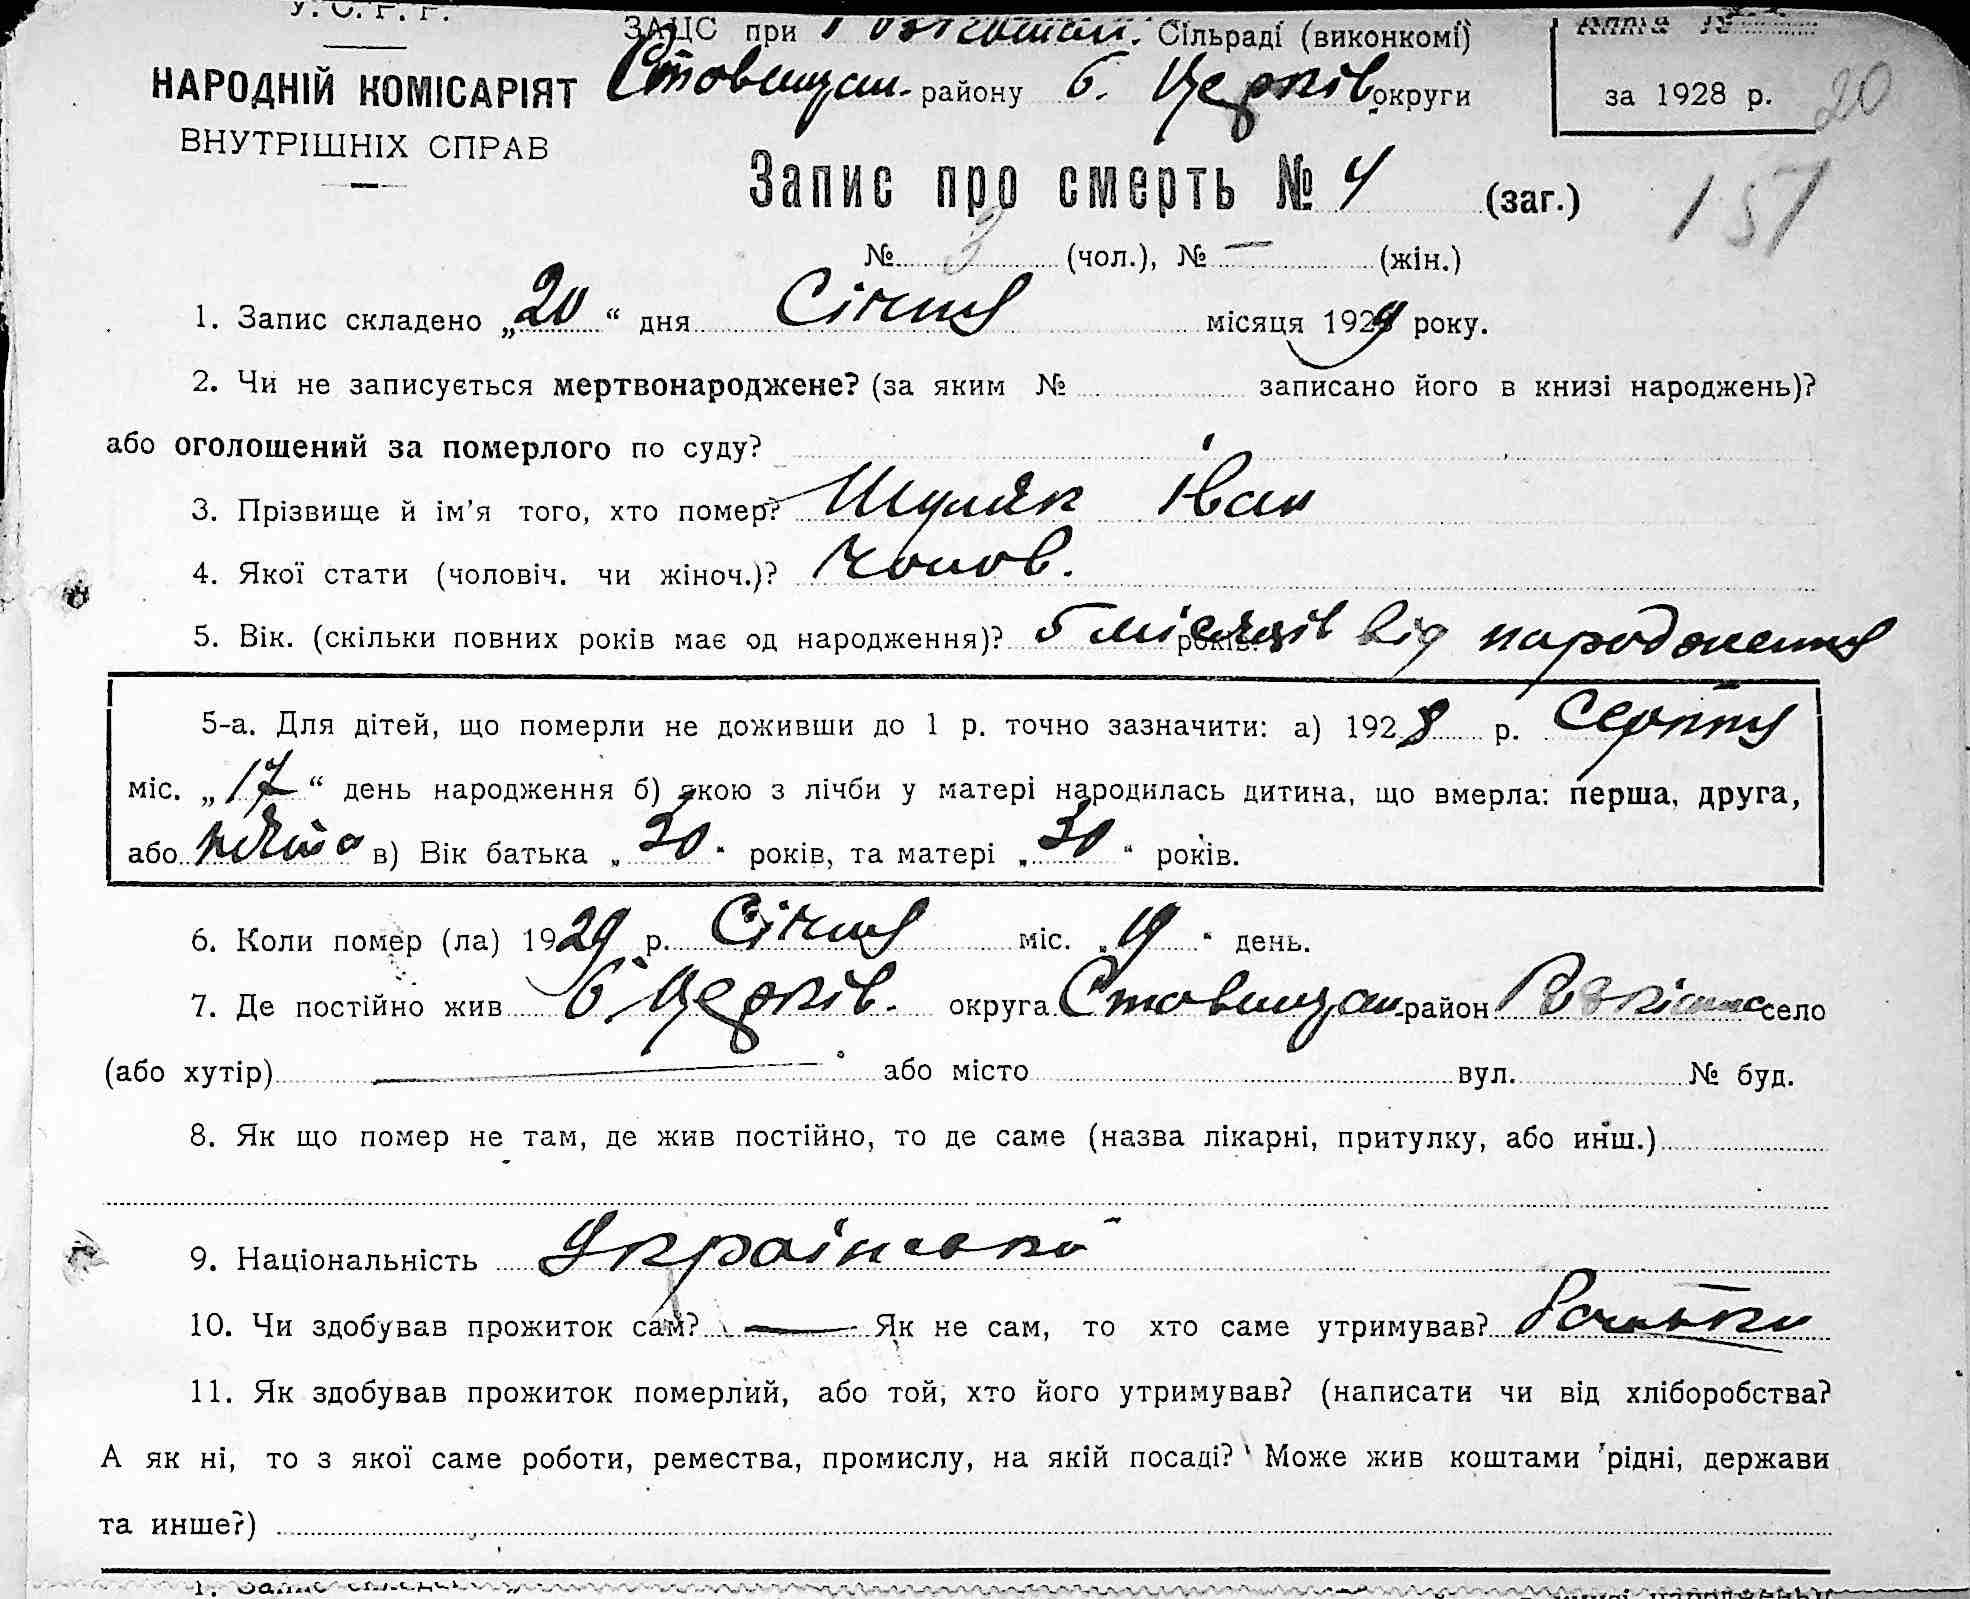 У. С. Р. Р.
ЗАЦС при Розкошан. Сільраді (виконкомі)
НАРОДНІЙ КОМІСАРІЯТ
ВНУТРІШНІХ СПРАВ
Ставищан. району Б. Церків. округи
за 1928 р. 20
Запис про смерть № 4 (заг.) 151
№ 3 (чол.), № — (жін.)
1. Запис складено „20“ дня Січня місяця 1929 року.
2. Чи не записується мертвонароджене? (за яким № записано його в книзі народжень)?
або оголошений за померлого по суду?
3. Прізвище й ім'я того, хто помер? Шуляк Іван
4. Якої стати (чоловіч. чи жіноч.)? Чолов.
5. Вік. (скільки повних років має од народження)? 5 місяців від народження
5-а. Для дітей, що померли не доживши до 1 р. точно зазначити: а) 1928 р. Серпня
міс. „17“ день народження б) якою з лічби у матері народилась дитина, що вмерла: перша, друга,
або п'ята в) Вік батька „30“ років, та матері „30“ років.
6. Коли помер (ла) 1929 р. Січня міс. „19“ день.
7. Де постійно жив Б Церків. округа Ставищан. район Розкішна село
(або хутір) — або місто вул. № буд.
8. Як що помер не там, де жив постійно, то де саме (назва лікарні, притулку, або инш.)
9. Національність Українська
10. Чи здобував прожиток сам? — Як не сам, то хто саме утримував? Батьки
11. Як здобував прожиток померлий, або той, хто його утримував? (написати чи від хліборобства?
А як ні, то з якої саме роботи, ремества, промислу, на якій посаді? Може жив коштами рідні, держави
та инше?)